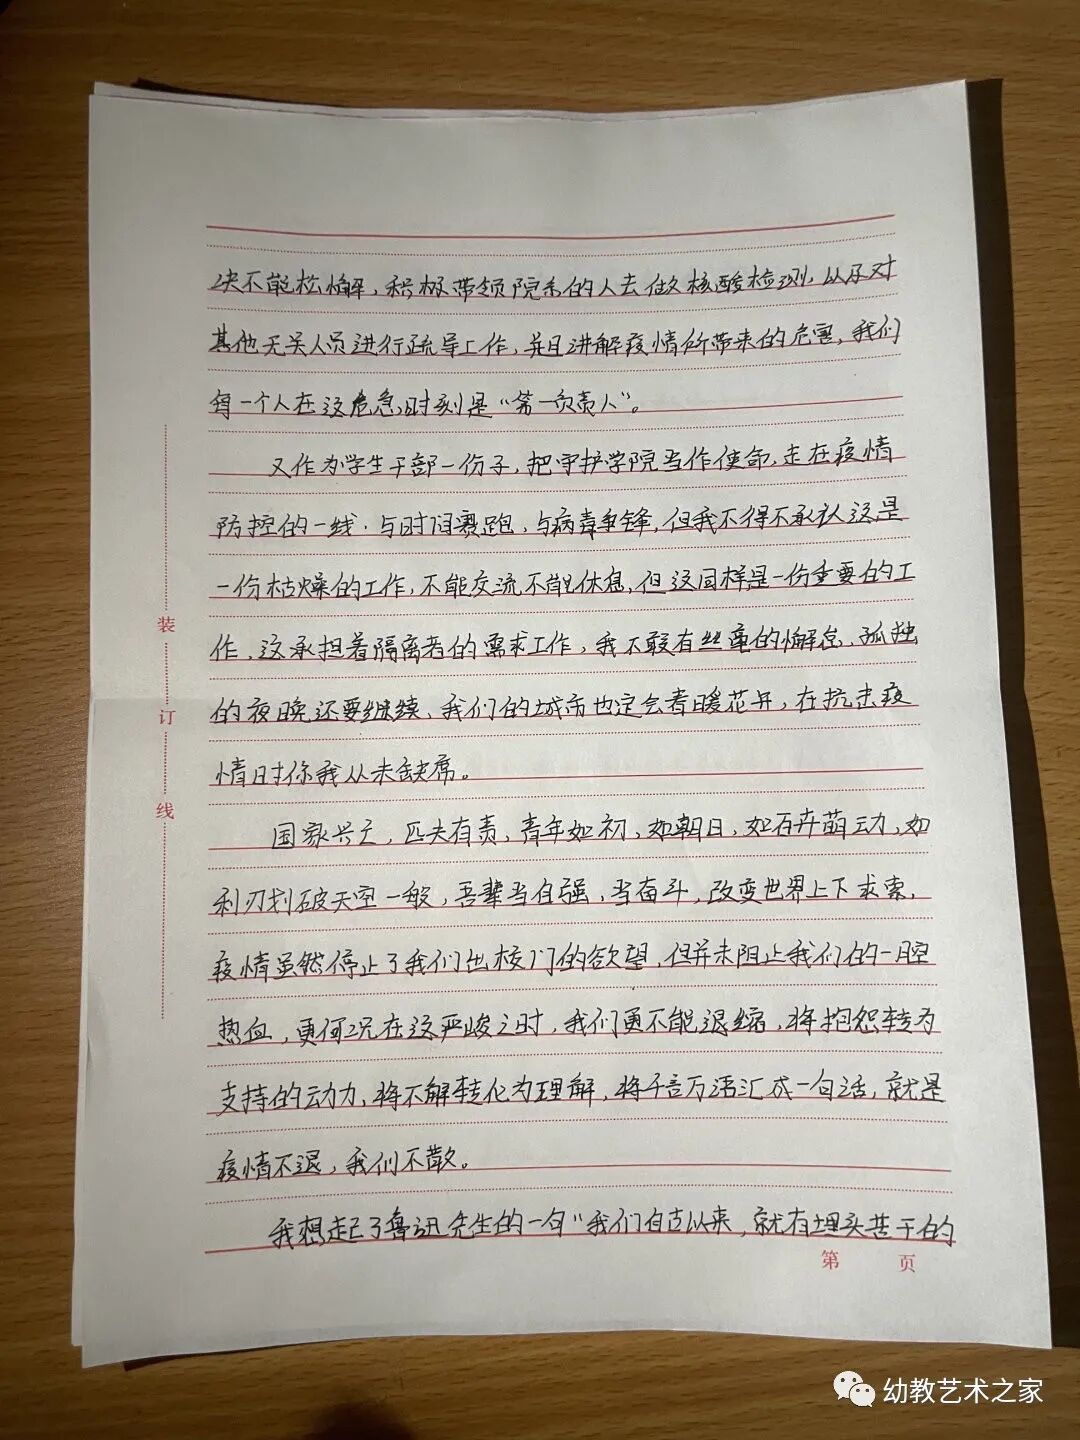 决不能松懈，积极带领院系的人去做核酸检测，以及对
其他无关人员进行疏导工作，并且讲解疫情所带来的危害，我们
每一个人在这危急时刻是“第一负责人”。
又作为学生干部一份子，把守护学院当作使命，走在疫情
防控的一线，与时间赛跑，与病毒争锋，但我不得不承认这是
一份枯燥的工作，不能交流不能休息，但这同样是一份重要的工
作，这承担着隔离者的需求工作，我不敢有丝毫的懈怠，孤独
的夜晚还要继续，我们的城市也定会春暖花开，在抗击疫
情时你我从未缺席。
国家兴亡，匹夫有责，青年如初，如朝日，如百卉萌动，如
利刃划破天空一般，吾辈当自强，当奋斗，改变世界上下求索，
疫情虽然停止了我们出校门的欲望，但并未阻止我们的一腔
热血，更何况在这严峻之时，我们更不能退缩，将抱怨转为
支持的动力，将不解转化为理解，将千言万语汇成一句话，就是
疫情不退，我们不散。
我想起了鲁迅先生的一句“我们自古以来，就有埋头苦干的
装
订
线
第 页
幼教艺术之家